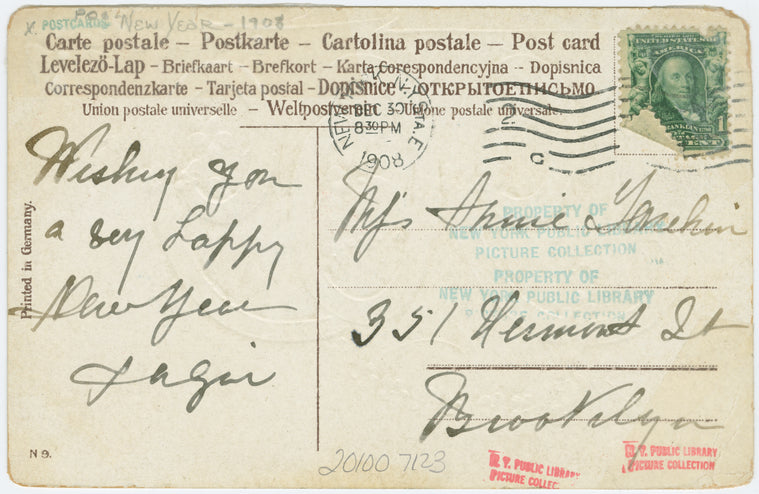 X. POSTCARDS NEW YEAR - 1908
Carte postale – Postkarte – Cartolina postale – Post card
Levelező-Lap – Briefkaart – Brefkort – Karta Corespondencyjna – Dopisnica
Correspondenzkarte – Tarjeta postal – Dopisnice – ОТКРЫТОЕПИСЬМО
Union postale universelle – Weltpostverein – Unione postale universale
NEW YORK, N.Y. STA.
DEC 30
8 30 PM
1908
UNITED STATES OF
AMERICA
FRANKLIN
1
CENT
Wishing you
a very Happy
New Year
Printed in Germany.
Annie
351 Vermont St
Brooklyn
PROPERTY OF
NEW YORK PUBLIC LIBRARY
PICTURE COLLECTION
PROPERTY OF
NEW YORK PUBLIC LIBRARY
PICTURE COLLECTION
N 9.
20100 7123
N. Y. PUBLIC LIBRARY
PICTURE COLLEC
N. Y. PUBLIC LIBRARY
PICTURE COLLECTION